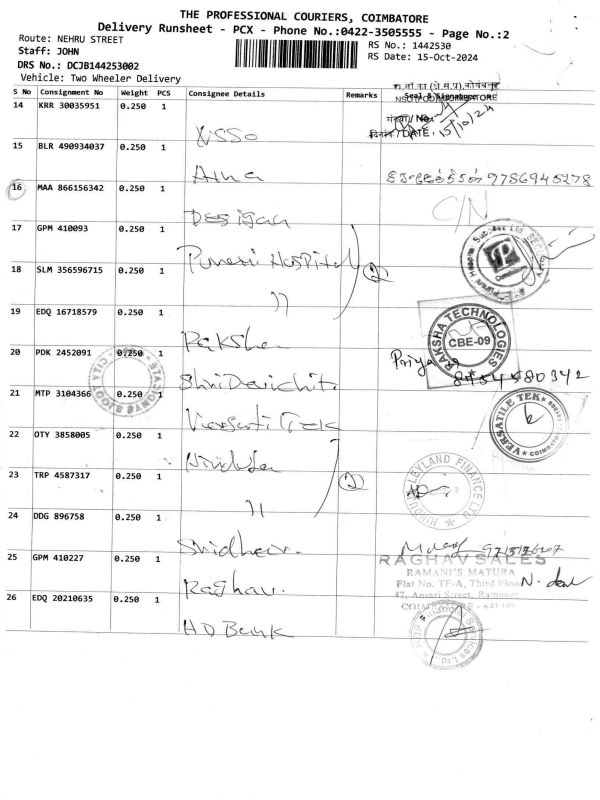 THE PROFESSIONAL COURIERS, COIMBATORE
Delivery Runsheet - PCX - Phone No.:0422-3505555 - Page No.:2
Route: NEHRU STREET
RS No.: 1442530
Staff: JOHN
RS Date: 15-Oct-2024
DRS No.: DCJB144253002
Vehicle: Two Wheeler Delivery
S No Consignment No Weight PCS Consignee Details Remarks Seal & Signature
DATE: 15/10/24
14 KRR 30035951 0.250 1 NSSO
15 BLR 490934037 0.250 1 9786945278
16 MAA 866156342 0.250 1 C/N
17 GPM 410093 0.250 1 Hospital
18 SLM 356596715 0.250 1 11
19 EDQ 16718579 0.250 1 Raksha
RAKSHA TECHNOLOGIES
CBE-09
20 PDK 2452091 0.250 1
Priya
8754580342
21 MTP 3104366 0.250 1 Tek
VERSATILE TEK
COIMBATORE
22 OTY 3858005 0.250 1 Hinduja
HINDUJA LEYLAND FINANCE LTD
23 TRP 4587317 0.250 1 11
24 DDG 896758 0.250 1
25 GPM 410227 0.250 1 Raghav.
RAGHAV SALES
RAMANI'S MATURA
Flat No. TF-A, Third Floor
37, Ansari Street, Ramnagar
26 EDQ 20210635 0.250 1 HD Bank